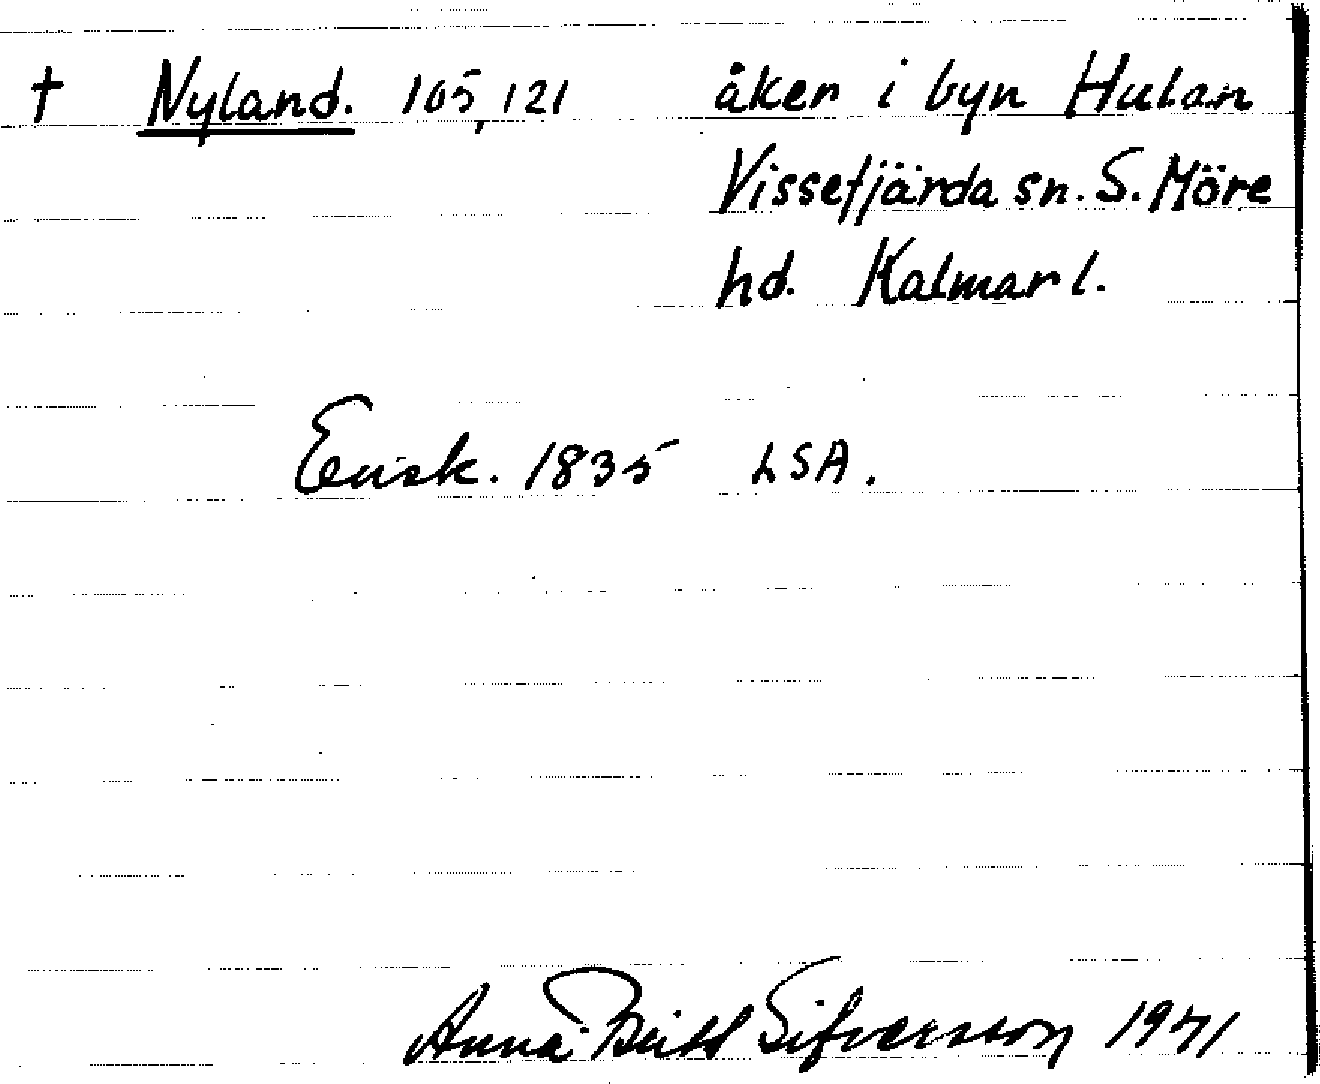 † Nyland. 105, 121 åker i byn Hulan
Vissefjärda sn. S. Möre
hd. Kalmar l.
Ensk. 1835 LSA.
Anna-Britt Sifversson 1971